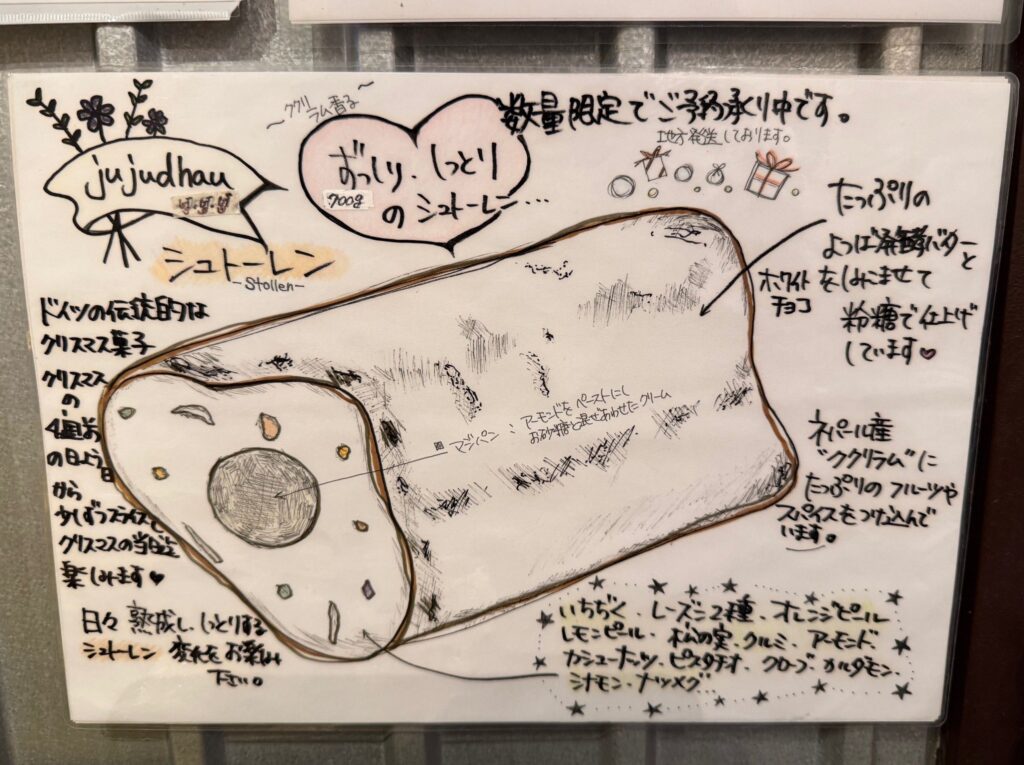 jujudhau
ずっしり、しっとり
700g
の シュトーレン…
〜ククリ
ラム香る〜
数量限定でご予約承り中です。
地方発送しております。
シュトーレン
-Stollen-
ドイツの伝統的な
クリスマス菓子
クリスマス
の
4週前
の日よう
日
から
少しずつスライスして
クリスマスの当日迄
楽しみます♥
日々 熟成し、しっとりする
シュトーレン 変化をお楽しみ
下さい。
マジパン：アーモンドをペーストにし
お砂糖と混ぜあわせたクリーム
たっぷりの
よつば発酵バターと
ホワイト
チョコ
をしみこませて
粉糖で仕上げ
しています♥
ネパール産
"ククリラム"に
たっぷりのフルーツや
スパイスをつけ込んで
います。
いちぢく・レーズン2種・オレンジピール
レモンピール・松の実・クルミ・アーモンド・
カシューナッツ・ピスタチオ・クローブ・カルダモン・
シナモン・ナツメグ